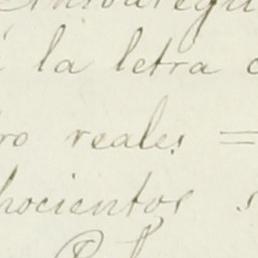 la letra
ro reales =
hocientos s